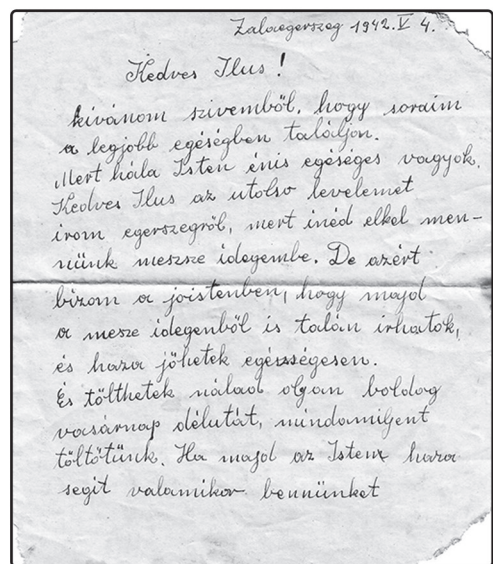 Zalaegerszeg 1942. V 4.
Kedves Ilus!
kivánom szivemből, hogy soraim
a legjobb egéségben találjon.
Mert hála Isten énis egéséges vagyok.
Kedves Ilus az utolso levelemet
irom egerszegről, mert inéd elkel men-
nünk meszsze idegembe. De azért
bizom a joistenben, hogy majd
a mesze idegenből is talán irhatok,
és haza jöhetek egésségesen.
És tölthetek nálad olyan boldog
vasárnap délutát, mindamilyent
töltötünk. Ha majd az Isten haza
segit valamikor bennünket